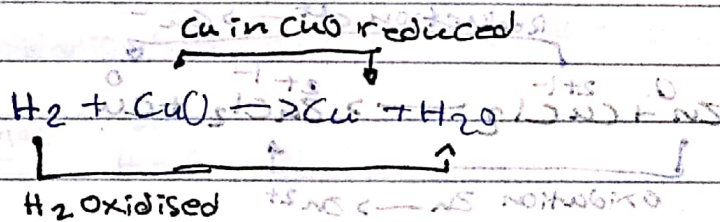 Cu in CuO reduced
H2 + CuO —> Cu + H2O
H2 Oxidised